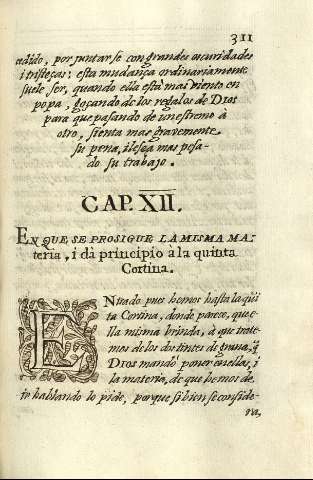 311
cedido, por juntarse con grandes oscuridades
i tristeças; esta mudança ordinariamente
suele ser, quando ella està mas viento en
popa, goçando de los regalos de Dios
para que pasando de un estremo à
otro, sienta mas gravemente
su pena, i le sea mas pesa-
do su trabajo.
CAP. XII.
EN QUE SE PROSIGUE LA MISMA MA-
teria, i dà principio à la quinta
Cortina.
ENtrado pues hemos hasta la quĩ
ta Cortina, donde parece, que e-
lla misma brinda, à que trate-
mos de los dos tintes de grana, q̃
DIOS mandó poner en ellas, i
la materia, de que hemos de
ir hablando lo pide, porque si bien se conside-
ra,